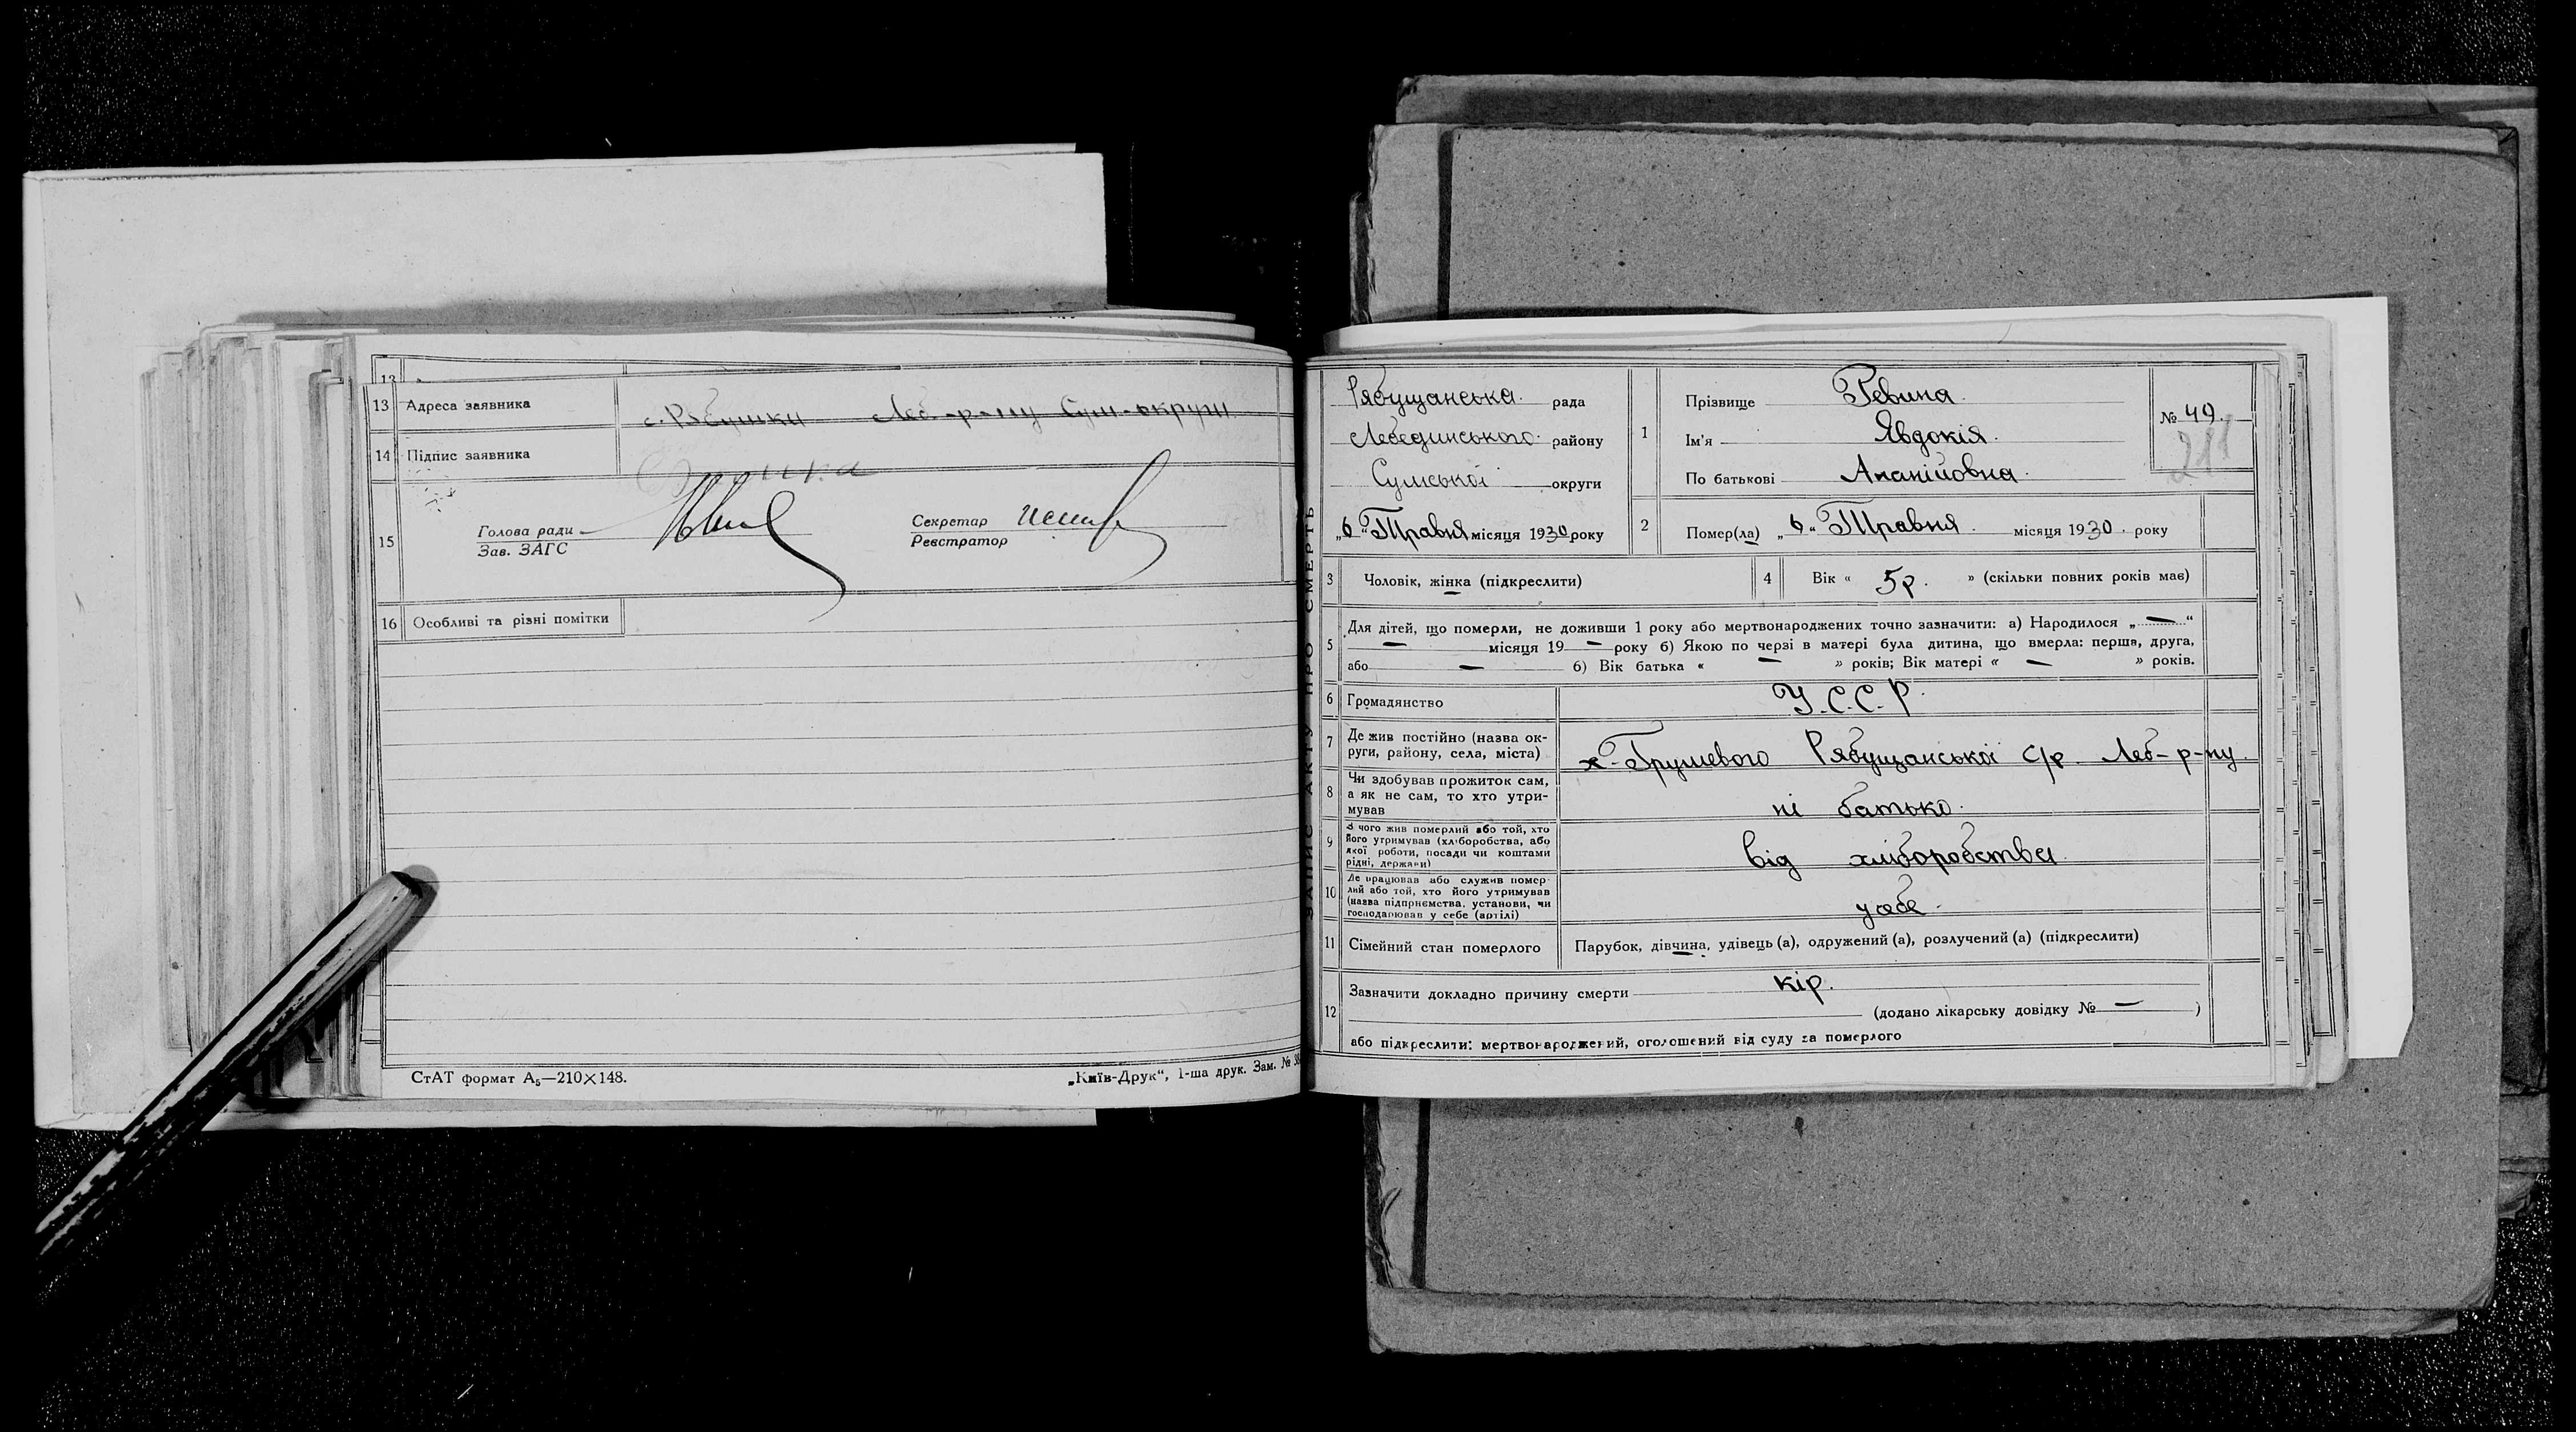 13 Адреса заявника с. Рябушки Леб.-р-ну Сум-округи
14 Підпис заявника
15 Голова ради
Зав. ЗАГС
Секретар
Реєстратор
16 Особливі та різні помітки
СтАТ формат А₅—210×148.
„Київ-Друк“, 1-ша друк. Зам. №
ЗАПИС АКТУ ПРО СМЕРТЬ
Рябущанська рада
Лебединського району
Сумської округи
„6“ Травня місяця 1930 року
1 Прізвище Ревина
Ім'я Явдокія.
По батькові Ананійовна.
№ 49.
211
2 Помер(ла) „6“ Травня місяця 1930. року
3 Чоловік, жінка (підкреслити)
4 Вік « 5р. » (скільки повних років має)
5 Для дітей, що померли, не доживши 1 року або мертвонароджених точно зазначити: а) Народилося „—“
— місяця 19 — року б) Якою по черзі в матері була дитина, що вмерла: перша, друга,
або — б) Вік батька « — » років; Вік матері « — » років.
6 Громадянство У.С.С.Р.
7 Де жив постійно (назва ок-
руги, району, села, міста) х-Грушевого Рябущанської С/р. Леб-р-ну.
8 Чи здобував прожиток сам,
а як не сам, то хто утри-
мував ні батько.
9 З чого жив померлий або той, хто
його утримував (хліборобства, або
якої роботи, посади чи коштами
рідні, держави) від хліборобства
10 Де працював або служив помер-
лий або той, хто його утримував
(назва підприємства, установи, чи
господарював у себе (артілі) у себе.
11 Сімейний стан померлого Парубок, дівчина, удівець (а), одружений (а), розлучений (а) (підкреслити)
12 Зазначити докладно причину смерти кір.
(додано лікарську довідку № — )
або підкреслити: мертвонароджений, оголошений від суду за померлого